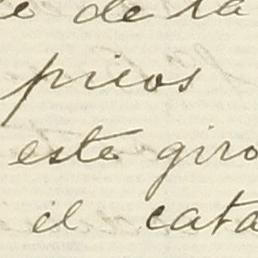 e de la
picos
este giro
el cata